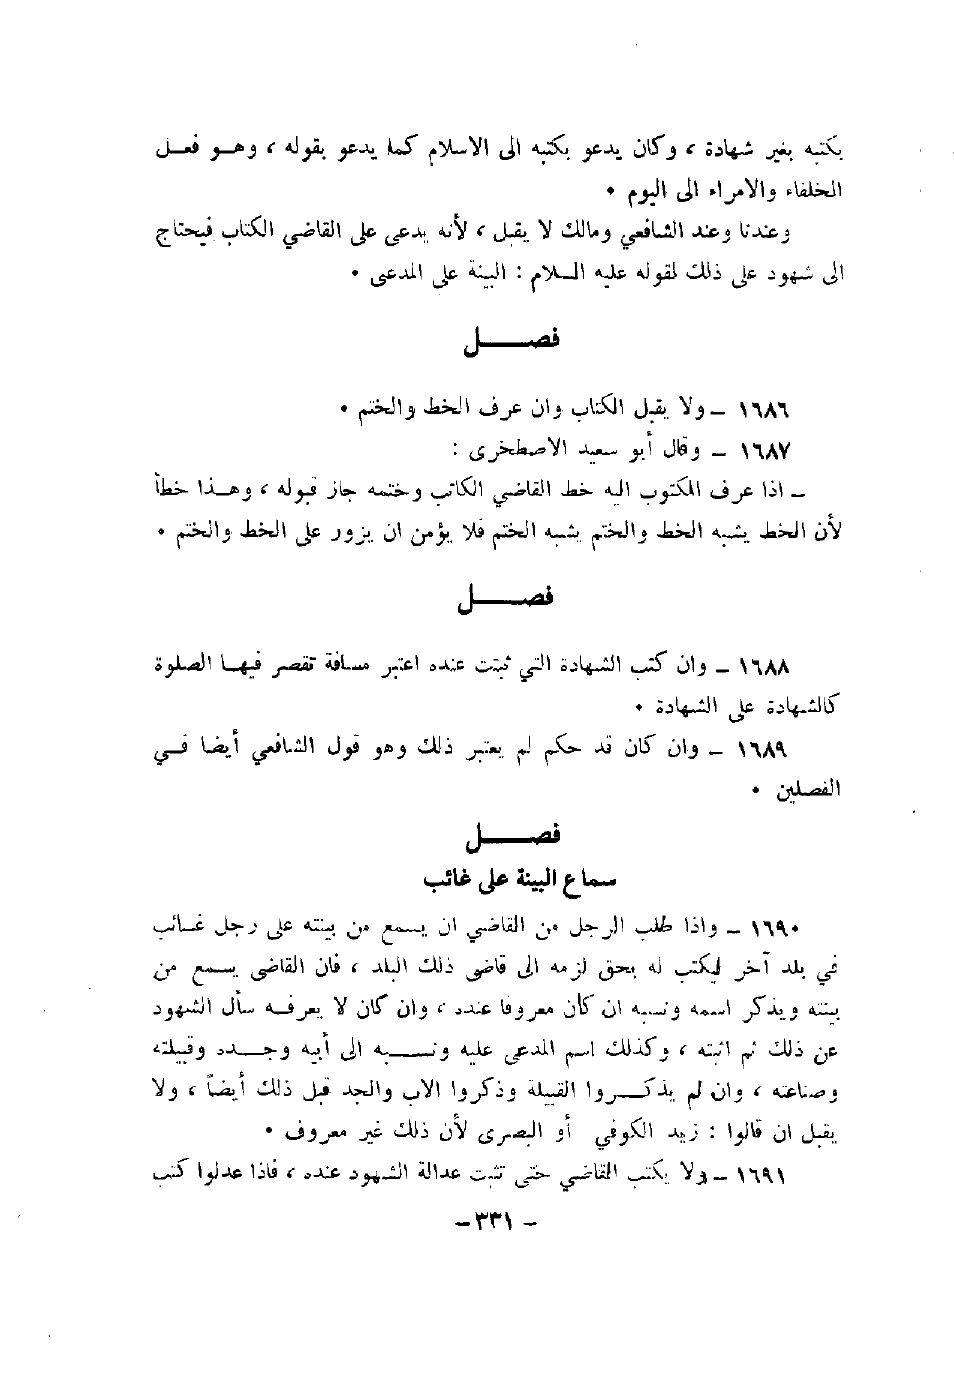 بكتبه بغير شهادة ، وكان يدعو بكتبه الى الاسلام كما يدعو بقوله ، وهــو فعــل
الخلفاء والامراء الى اليوم ٠
وعندنا وعند الشافعي ومالك لا يقبل ، لأنه يدعى على القاضي الكتاب فيحتاج
الى شهود على ذلك لقوله عليه الســلام : البينة على المدعى ٠
فصـــــل
١٦٨٦ ــ ولا يقبل الكتاب وان عرف الخط والختم ٠
١٦٨٧ ــ وقال أبو سعيد الاصطخرى :
ــ اذا عرف المكتوب اليه خط القاضي الكاتب وختمه جاز قبوله ، وهــذا خطأ
لأن الخط يشبه الخط والختم يشبه الختم فلا يؤمن ان يزور على الخط والختم ٠
فصـــــل
١٦٨٨ ــ وان كتب الشهادة التي ثبتت عنده اعتبر مسافة تقصر فيهــا الصلوة
كالشهادة على الشهادة ٠
١٦٨٩ ــ وان كان قد حكم لم يعتبر ذلك وهو قول الشافعي أيضا فــي
الفصلين ٠
فصـــــل
سماع البينة على غائب
١٦٩٠ ــ واذا طلب الرجل من القاضي ان يسمع من بينته على رجل غــائب
في بلد آخر ليكتب له بحق لزمه الى قاضى ذلك البلد ، فان القاضى يسمع من
بينته ويذكر اسمه ونسبه ان كان معروفا عنده ، وان كان لا يعرفــه سأل الشهود
عن ذلك ثم اثبته ، وكذلك اسم المدعى عليه ونســــبه الى أبيه وجـــده وقبيلته
وصناعته ، وان لم يذكــــروا القبيلة وذكروا الاب والجد قبل ذلك أيضاً ، ولا
يقبل ان قالوا : زيد الكوفي أو البصرى لأن ذلك غير معروف ٠
١٦٩١ ــ ولا يكتب القاضي حتى تثبت عدالة الشهود عنده ، فاذا عدلوا كتب
ــ ٣٣١ ــ